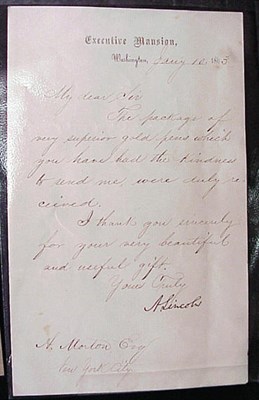 Executive Mansion,
Washington, Jany 12 1863
My dear Sir
The package of
very superior gold pens which
you have had the kindness
to send me, were duly re
cieved.
I thank you sincerely
for your very beautiful
and useful gift.
Yours Truly
A Lincoln
A. Morton Esq
New York City